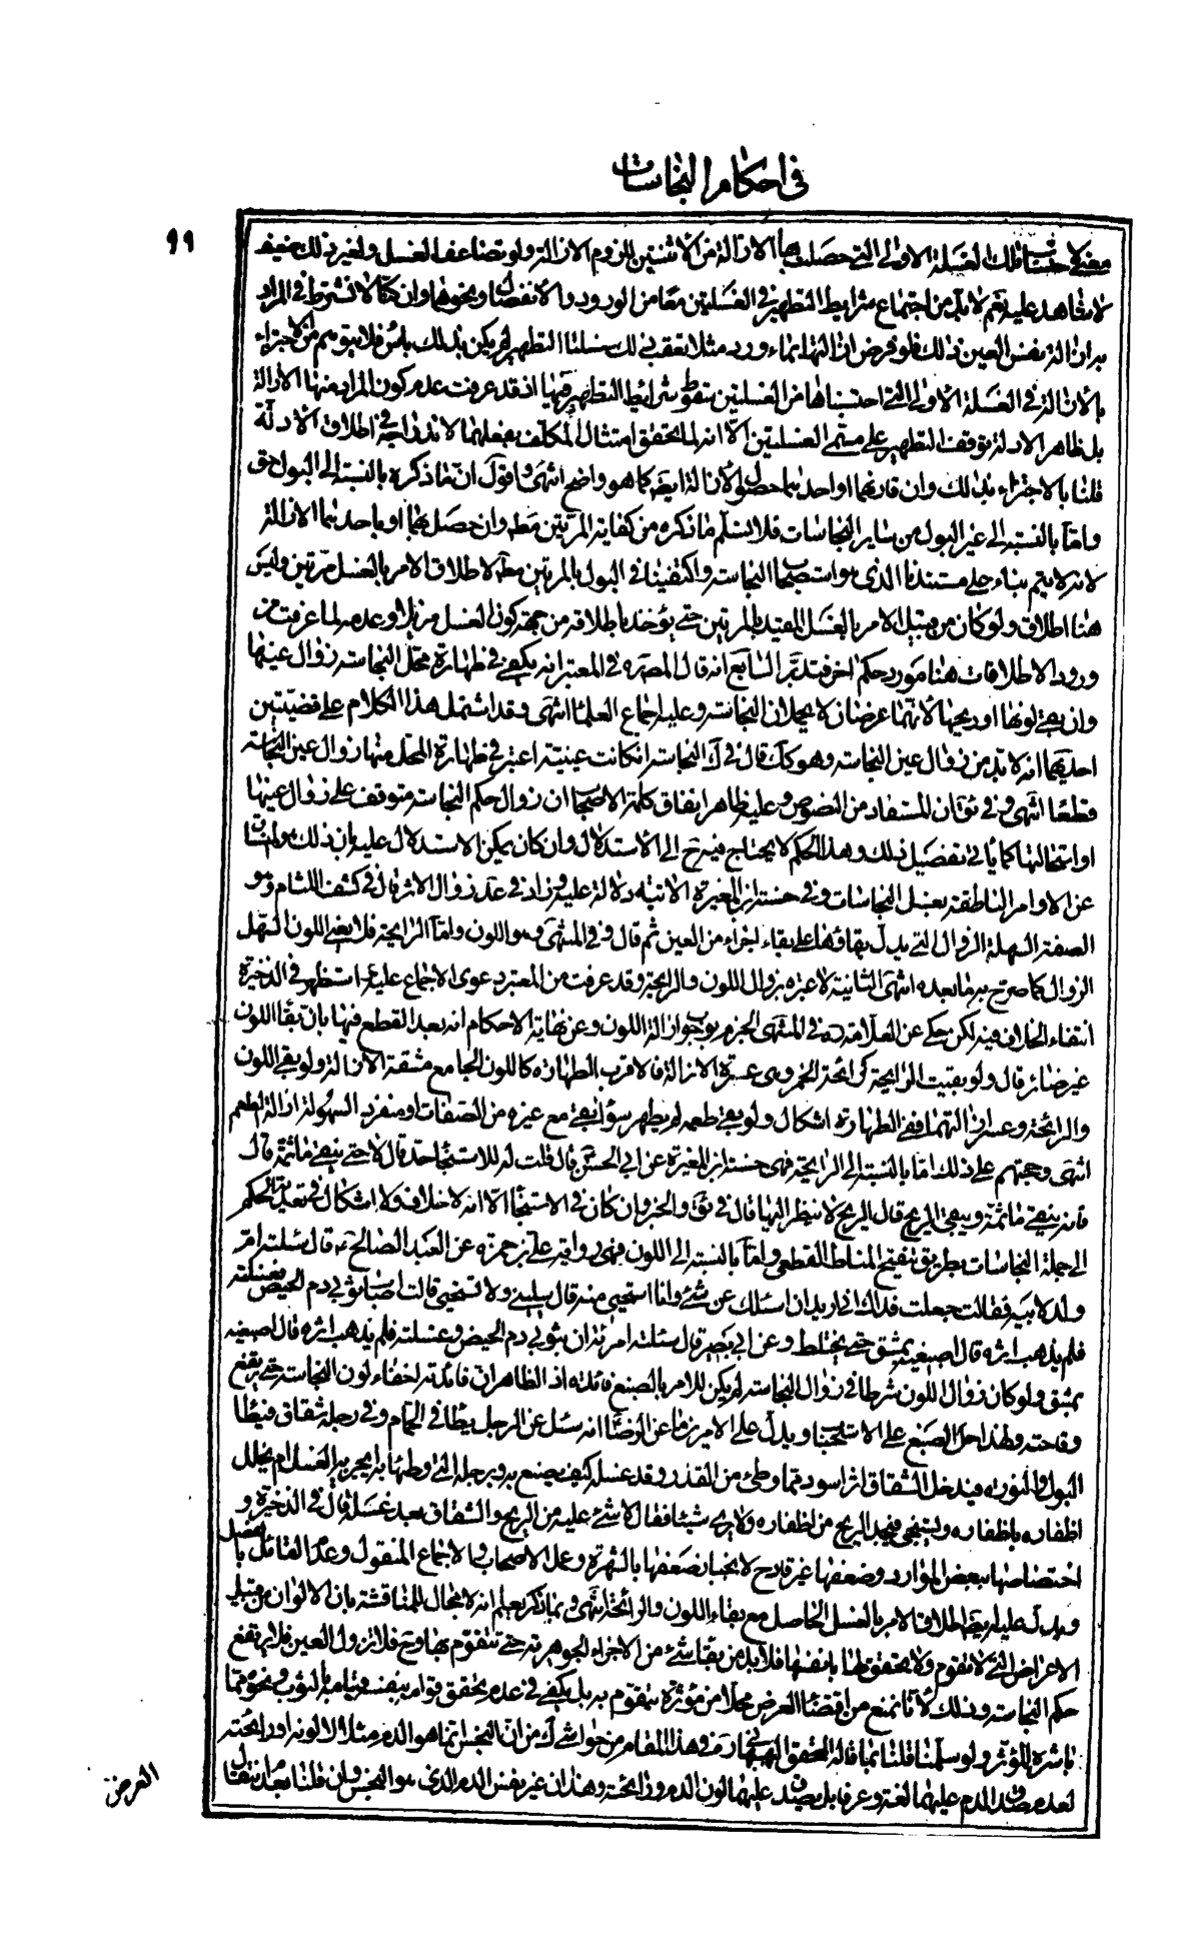 في احكام النجاسات
٩٩
احتساب تلك الغسلة الاولى التي حصلت بها الازالة من الاثنتين للزوم الازالة ولو تضاعف الغسل ولغير ذلك ضعيف
لا شاهد عليه نعم لا بد من اجتماع شرايط التطهير في الغسلتين معا من الورود والانفصال ونحوهما وان كنا لا نشترط في المراد
بازالة نفس العين ذلك فلو فرض ازالتها بماء ورد مثلا يعقب ذلك غسلنا التطهير لم يكن بذلك باس فلا يتوهم من الاجتزاء
بالازالة في الغسلة الاولى التي احتسبناها من الغسلتين سقوط شرائط التطهير فيها اذ قد عرفت عدم كون المراد منها الازالة
بل ظاهر الادلة توقف التطهير على مسمى الغسلتين الا انه لما يتحقق امتثال المكلف بفعلهما لاندراجه في اطلاق الادلة
قلنا بالاجتزاء بذلك وان قارنهما او احديهما حصول الازالة ايضا كما هو واضح انتهى واقول ان ما ذكره بالنسبة الى البول حق
واما بالنسبة الى غير البول من ساير النجاسات فلا نسلم ما ذكره من كفاية المرتين مطلقا وان حصل بهما او باحديهما الازالة
لانه لا يتم بناء على مستندنا الذي هو استصحاب النجاسة واكتفينا في البول بالمرتين مطلقا لاطلاق الامر بالغسل مرتين وليس
هنا اطلاق ولو كان من قبيل الامر بالغسل المقيد بالمرتين حتى يؤخذ باطلاقه من جهة كون الغسل مزيلا وعدمه لما عرفت من
ورود الاطلاقات هنا مورد حكم اخر فتدبر السابع انه قال المصره في المعتبر انه يكفي في طهارة محل النجاسة زوال عينها
وان بقي لونها او ريحها لانهما عرضان لا يحملان النجاسة وعليه اجماع العلماء انتهى وقد اشتمل هذا الكلام على قضيتين
احديهما انه لا بد من زوال عين النجاسة وهو كك قال في ك النجاسة ان كانت عينية اعتبر في طهارة المحل منها زوال عين النجاسة
قطعا انتهى وفي ئق ان المستفاد من النصوص وعليه ظاهر اتفاق كلمة الاصحاب ان زوال حكم النجاسة متوقف على زوال عينها
او استحالتها كما ياتي تفصيل ذلك وهذا الحكم لا يحتاج فيه الى الاستدلال وان كان يمكن الاستدلال عليه بان ذلك هو
عن الاوامر الناطقة بغسل النجاسات وفي حسنة ابن المغيرة الاتية دلالة عليه وزاد في عد زوال الاثر قال في كشف اللثام وهو
الصفة السهلة الزوال التي يدل بقاؤها على بقاء اجزاء من العين ثم قال وفي المنتهى وهو اللون واما الرايحة فلا يغني اللون السهل
الزوال كما صرح به ما بعده انتهى الثانية لا عبرة بزوال اللون والرايحة وقد عرفت من المعتبر دعوى الاجماع عليه واستظهر في الذخيرة
انتفاء الخلاف فيه لكن حكي عن العلامة ره في المنتهى الجزم بوجوب ازالة اللون وعن نهاية الاحكام انه بعد القطع فيها بان بقاء اللون
غير ضائر قال ولو بقيت الرايحة كرائحة الخمر وهي عسرة الازالة فالاقرب الطهارة كاللون الجامع مشقة الازالة ولو بقي اللون
والرائحة وعسر ازالتهما ففي الطهارة اشكال ولو بقي طعمه لم يطهر سواء بقي مع غيره من الصفات او منفردا لسهولة ازالة الطعم
انتهى وحجتهم على ذلك اما بالنسبة الى الرايحة فهي حسنة ابن المغيرة عن ابي الحسن قال قلت له للاستنجاء حد قال لا حتى ينقي ما ثمة قال
فانه ينقي ما ثمة ويبقى الريح قال الريح لا ينظر اليها قال في ئق والخبر وان كان في الاستنجاء الا انه لا خلاف ولا اشكال في تعدية الحكم
الى جملة النجاسات بطريق تنقيح المناط القطعي واما بالنسبة الى اللون فهي رواية علي بن حمزة عن العبد الصالح ع قال سئلته ام
ولد لابيه فقالت جعلت فداك اني اريد ان اسئلك عن شئ وانا استحيي منه قال سلي ولا تستحيي قالت اصاب ثوبي دم الحيض فغسلته
فلم يذهب اثره قال اصبغيه بمشق حتى يختلط وعن ابي بصير قال سئلته امرءة ان بثوبي دم الحيض وغسلته فلم يذهب اثره قال اصبغيه
بمشق ولو كان زوال اللون شرطا في زوال النجاسة لم يكن للامر بالصبغ فائدة اذ الظاهر ان فائدته اخفاء لون النجاسة حتى يرتفع
وقاحته ولهذا حمل الصبغ على الاستحباب ويدل على الامرين ما عن الرضا انه سئل عن الرجل يطا في الحمام وفي رجله شقاق فيطا
البول والنورة فيدخل الشقاق اثر اسود مما وطئ من القذر وقد غسله كيف يصنع به وبرجله التي وطئ بها ايجزيه الغسل ام يخلل
اظفاره باظفاره ويستنجي فيجد الريح من اظفاره ولا يرى شيئا فقال لا شئ عليه من الريح والشقاق بعد غسله قال في الذخيرة و
اختصاصها ببعض الموارد وضعفها غير قادح لانجبار ضعفها بالشهرة وعمل الاصحاب والاجماع المنقول وعدم القائل بالفصل
ويدل عليه ايضا اطلاق الامر بالغسل الحاصل مع بقاء اللون والرائحة انتهى وبما ذكر يعلم انه لا مجال للمناقشة بان الالوان من قبيل
الاعراض التي لا تقوم ولا يتحقق لها بانفسها فلا بد من بقاء شئ من الاجزاء الجوهرية حتى تتقوم بها ومع فلا تزول العين فلا يرتفع
حكم النجاسة وذلك لانا نمنع من اقتضاء العرض محلا من مؤثره يتقوم به بل يكفي في عدم تحقق قوامه بنفسه قيامه بالثوب ونحوه مما
باشره المؤثر ولو سلمنا قلنا بما قاله المحقق البهبهاني ره في هذا المقام من حواشي ك من ان النجس انما هو الدم مثلا لا لونه او رائحته
لعدم صدق الدم عليهما لغة وعرفا بل يصدق عليهما لون الدم ورائحته وهذان غير نفس الدم الذي هو النجس وان قلنا بعد انتقال
العرض